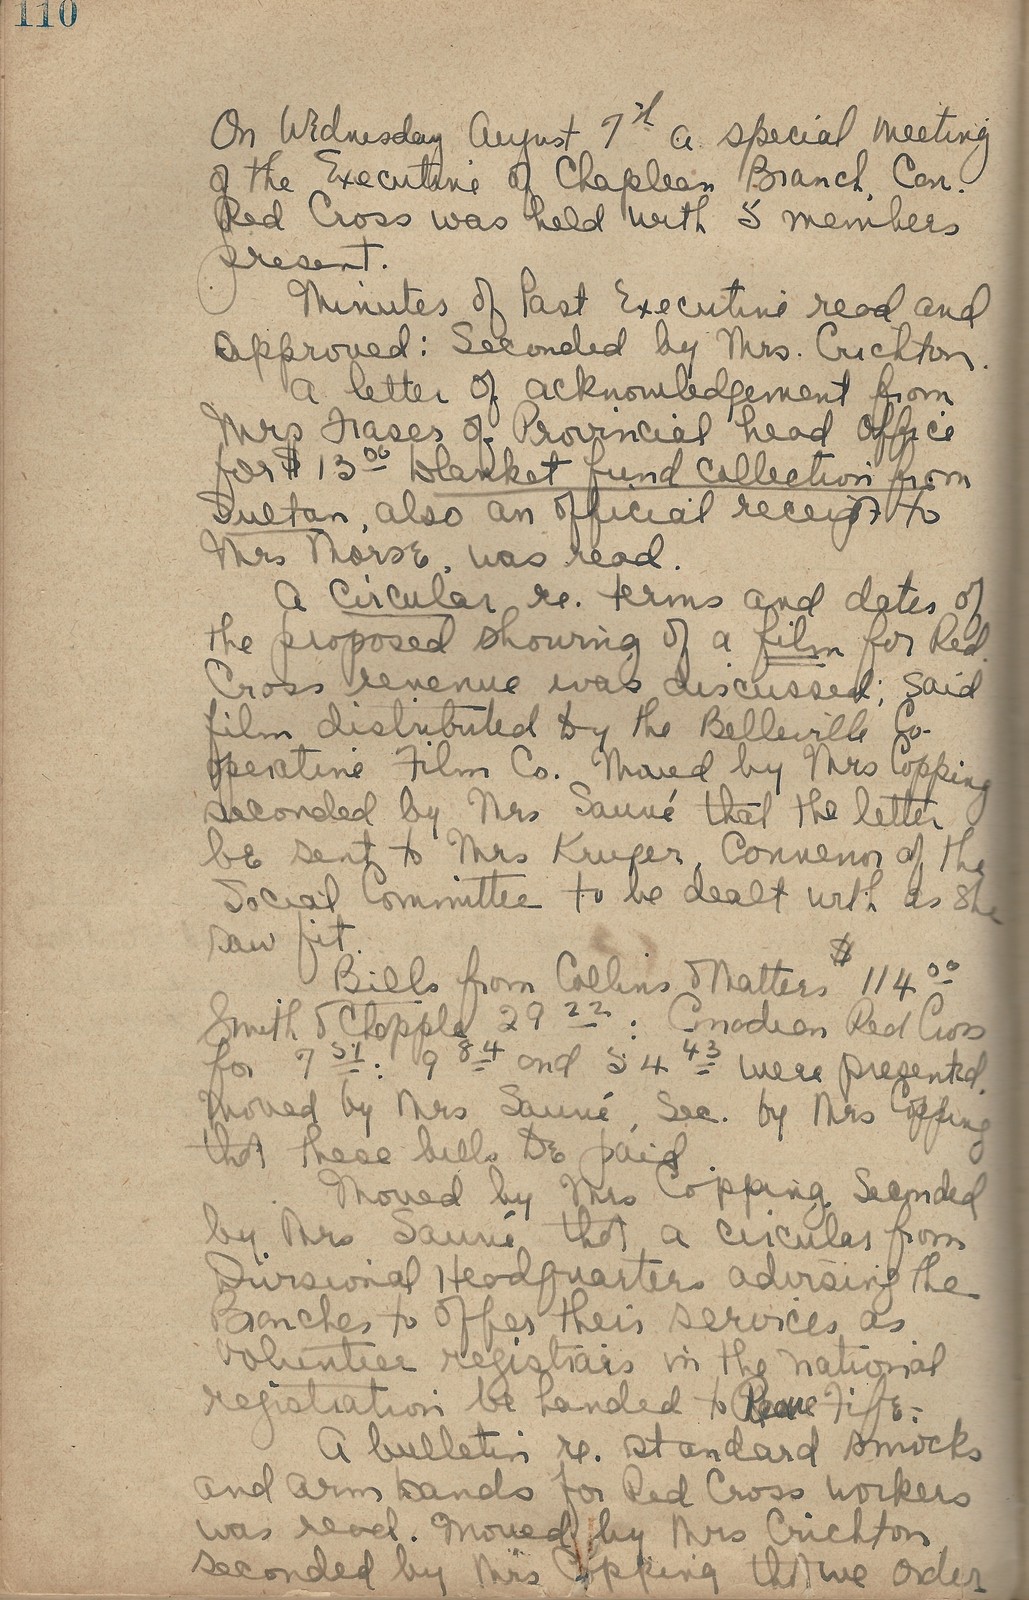 110
On Wednesday August 7th a special meeting
of the Executive of Chapleau Branch, Can.
Red Cross was held with 5 members
present.
Minutes of Past Executive read and
approved: Seconded by Mrs. Crichton.
A letter of acknowledgement from
Mrs Fraser of Provincial head office
for $13.00 blanket fund collection from
Sultan, also an official receipt to
Mrs Morse, was read.
A circular re. terms and dates of
the proposed showing of a film for Red
Cross revenue was discussed; said
film distributed by the Belleville Co-
operative Film Co. Moved by Mrs Copping
seconded by Mrs Sauvé that the letter
be sent to Mrs Kruger, Convenor of the
Social Committee to be dealt with as she
saw fit.
Bills from Collins & Matters $114.00
Smith & Chapple 29 22: Canadian Red Cross
for 7 51: 9 84 and 54 43 were presented.
Moved by Mrs Sauvé, Sec. by Mrs Copping
that these bills be paid.
Moved by Mrs Copping, Seconded
by Mrs Sauvé that a circular from
Divisional Headquarters advising the
Branches to offer their services as
volunteer registrars in the national
registration be handed to Fiffe.
A bulletin re. standard smocks
and arm bands for Red Cross workers
was read. Moved by Mrs Crichton
seconded by Mrs Copping that we order